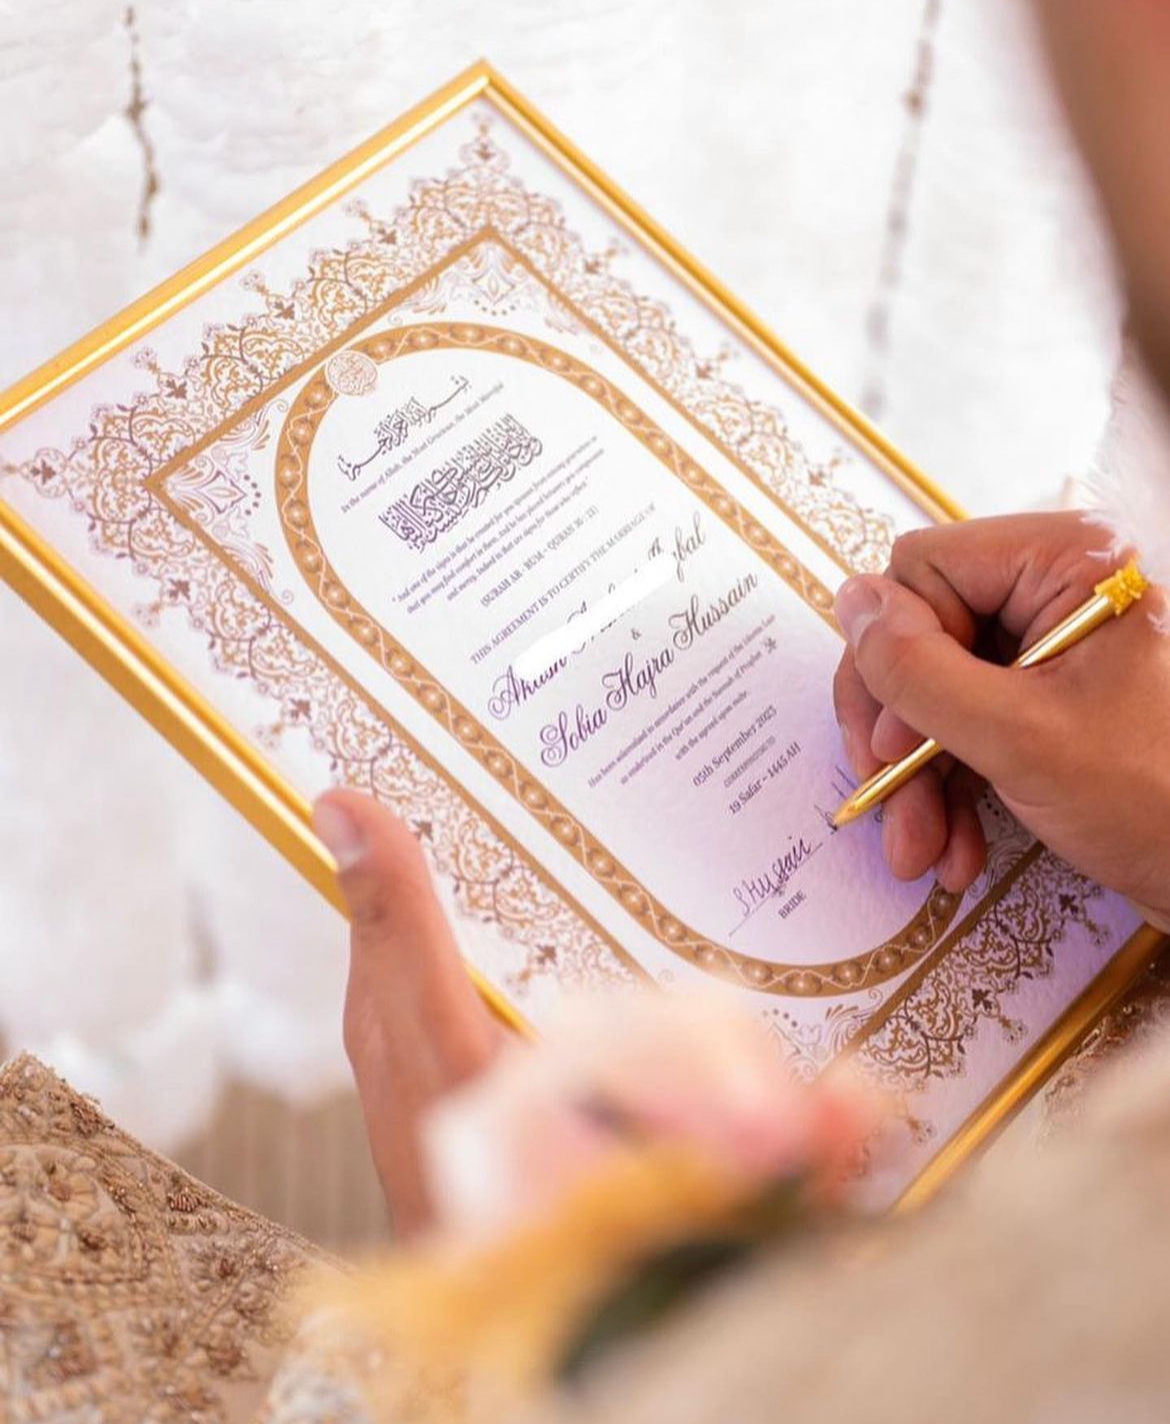 In the name of Allah, the Most Gracious, the Most Merciful
"And one of the signs is that he created for you spouses from among yourselves so
that you may find comfort in them. And he has placed between you compassion
and mercy. Indeed in that are signs for those who reflect"
(SURAH AR - RUM - QURAN 30 - 21)
THIS AGREEMENT IS TO CERTIFY THE MARRIAGE OF
&
Sobia Hajra Hussain
Has been solemnised in accordance with the request of the Islamic Law
as enshrined in the Qur'an and the Sunnah of Prophet ﷺ
with the agreed upon mahr.
05th September 2023
CORRESPONDING TO
19 Safar - 1445 AH
S Hussain
BRIDE